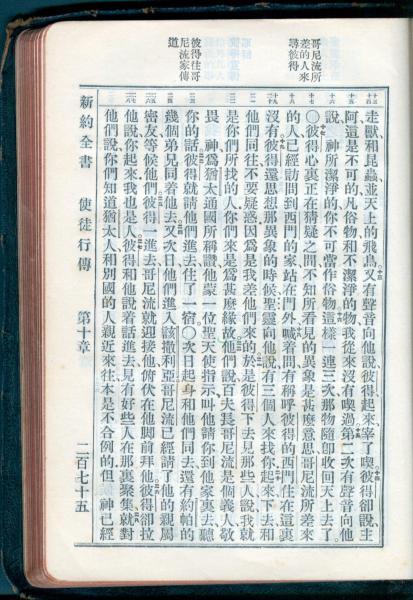 哥尼流所
差的人來
尋彼得
彼得往哥
尼流家傳
道
走獸和昆蟲、並天上的飛鳥、又有聲音向他說、彼得起來宰了喫彼得卻說、主
阿、這是不可的、凡俗物、和不潔淨的物、我從來沒有喫過第二次有聲音向他
說、　神所潔淨的、你不可當作俗物這樣一連三次那物隨即收回天上去了。
〇彼得心裏正在猜疑之間、不知所看見的異象是甚麼意思、哥尼流所差來
的人、已經訪問到西門的家、站在門外喊着問、有稱呼彼得的西門住在這裏
沒有彼得還思想那異象的時候、聖靈向他說、有三個人來找你起來、下去、和
他們同往、不要疑惑、因爲是我差他們來的於是彼得下去見那些人、說我就
是你們所找的人、你們來是爲甚麼緣故他們說、百夫長哥尼流是個義人、敬
畏　神、爲猶太通國所稱讚、他蒙一位聖天使指示、叫他請你到他家裏去、聽
你的話彼得就請他們進去、住了一宿〇次日起身和他們同去、還有約帕的
幾個弟兄同着他去又次日他們進入該撒利亞哥尼流已經請了他的親屬
密友、等候他們彼得一進去、哥尼流就迎接他、俯伏在他脚前拜他彼得卻拉
他說、你起來我也是人彼得和他說着話進去、見有好些人在那裏聚集、就對
他們說、你們知道猶太人、和別國的人親近來往、本是不合例的、但　神已經
新約全書　使徒行傳　第十章　二百七十五